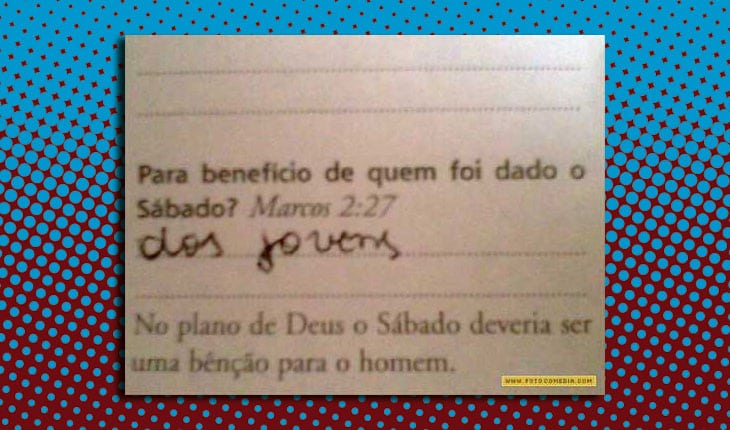 Para benefício de quem foi dado o
Sábado? Marcos 2:27
dos jovens
No plano de Deus o Sábado deveria ser
uma bênção para o homem.
WWW.FOTOCOMEDIA.COM